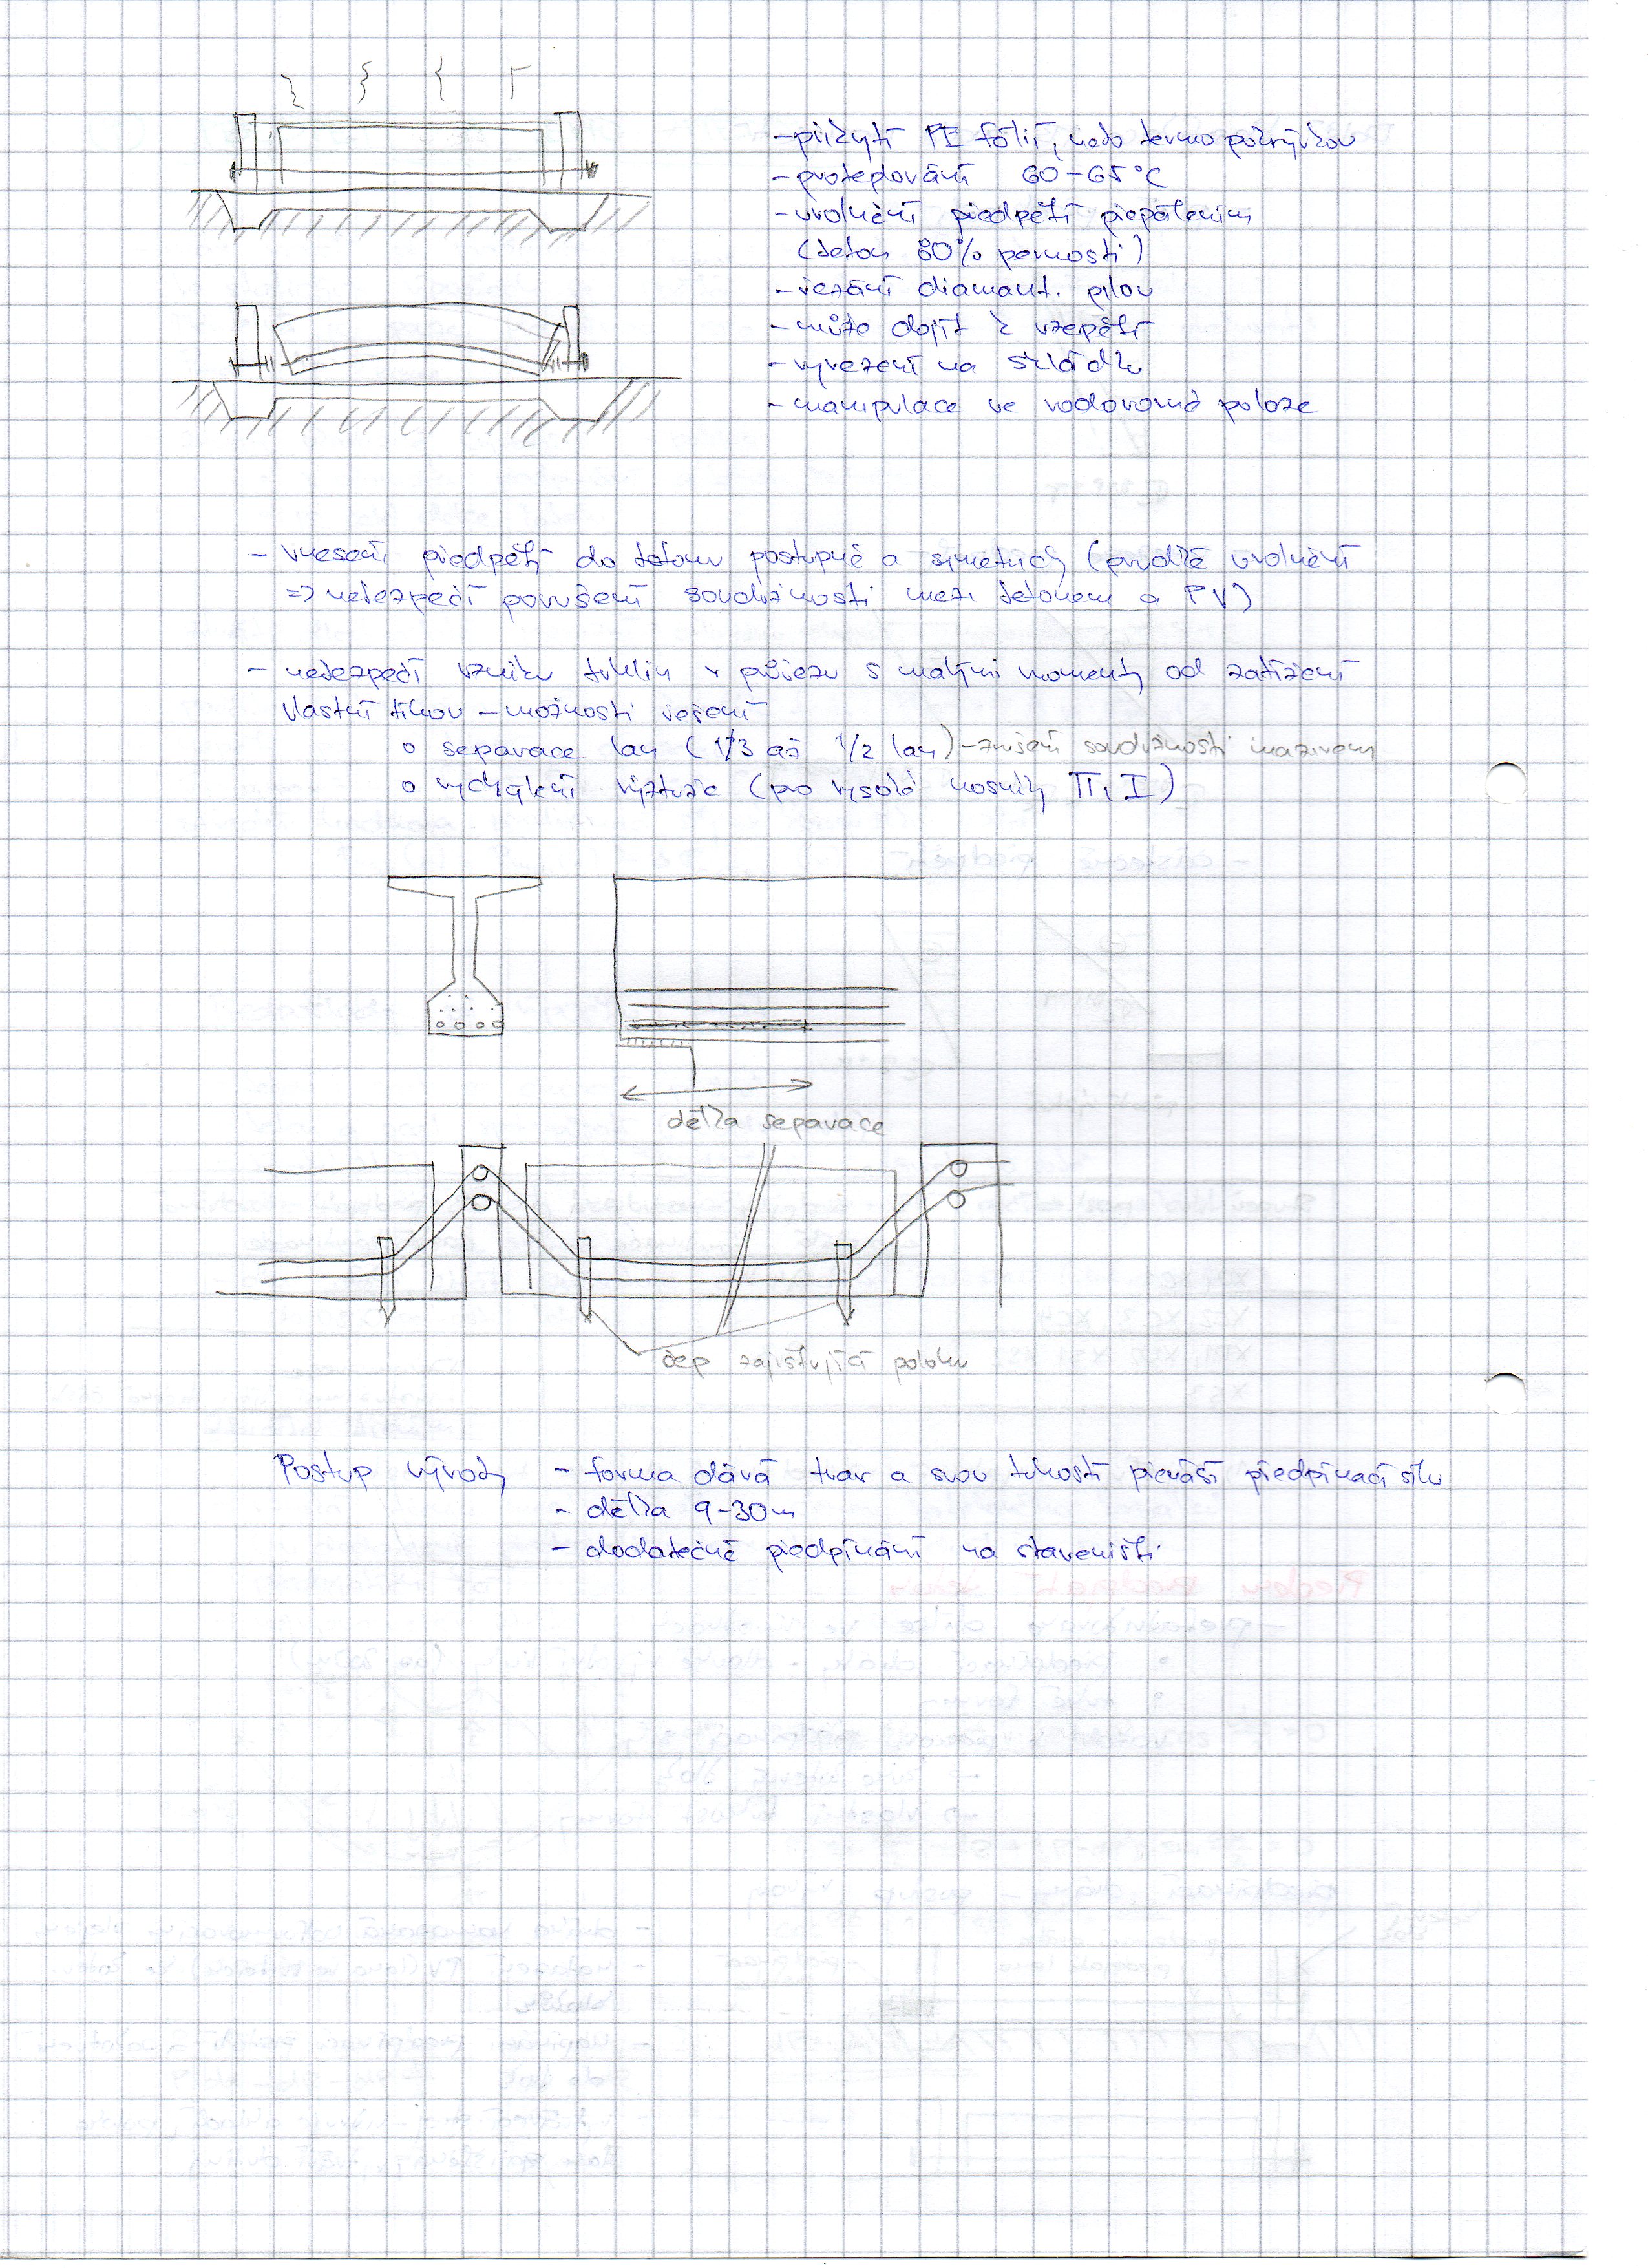 - přikytí PE fólií, nebo termo pokrývkou
- proteplování 60-65°C
- uvolnění předpětí přepálením
(beton 80% pevnosti)
- řezání diamant. pilou
- může dojít k vzepětí
- vyvezení na skládku
- manipulace ve vodorovné poloze
- vnesení předpětí do betonu postupně a symetricky (prudké uvolnění
=> nebezpečí porušení soudržnosti mezi betonem a PV)
- nebezpečí vzniku trhlin v průřezu s malými momenty od zatížení
vlastní tíhou - možnosti řešení
o separace lan (1/3 až 1/2 lan) - zrušení soudržnosti mazivem
o vychýlení výztuže (pro vysoké nosníky Π, I)
délka separace
čep zajišťující polohu
Postup výroby - forma dává tvar a svou tuhostí přenáší předpínací sílu
- délka 9-30m
- dodatečné předpínání na staveništi